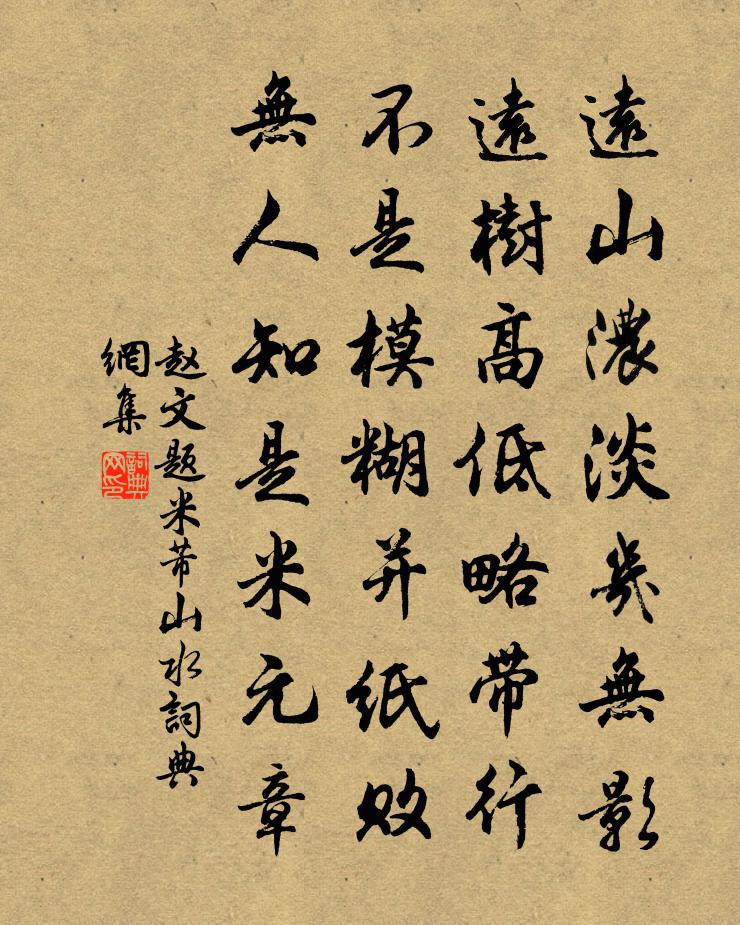 遠山濃淡幾無影
遠樹高低略帶行
不是模糊并紙敗
無人知是米元章
赵文题米芾山水詞典
網集
詞典網印